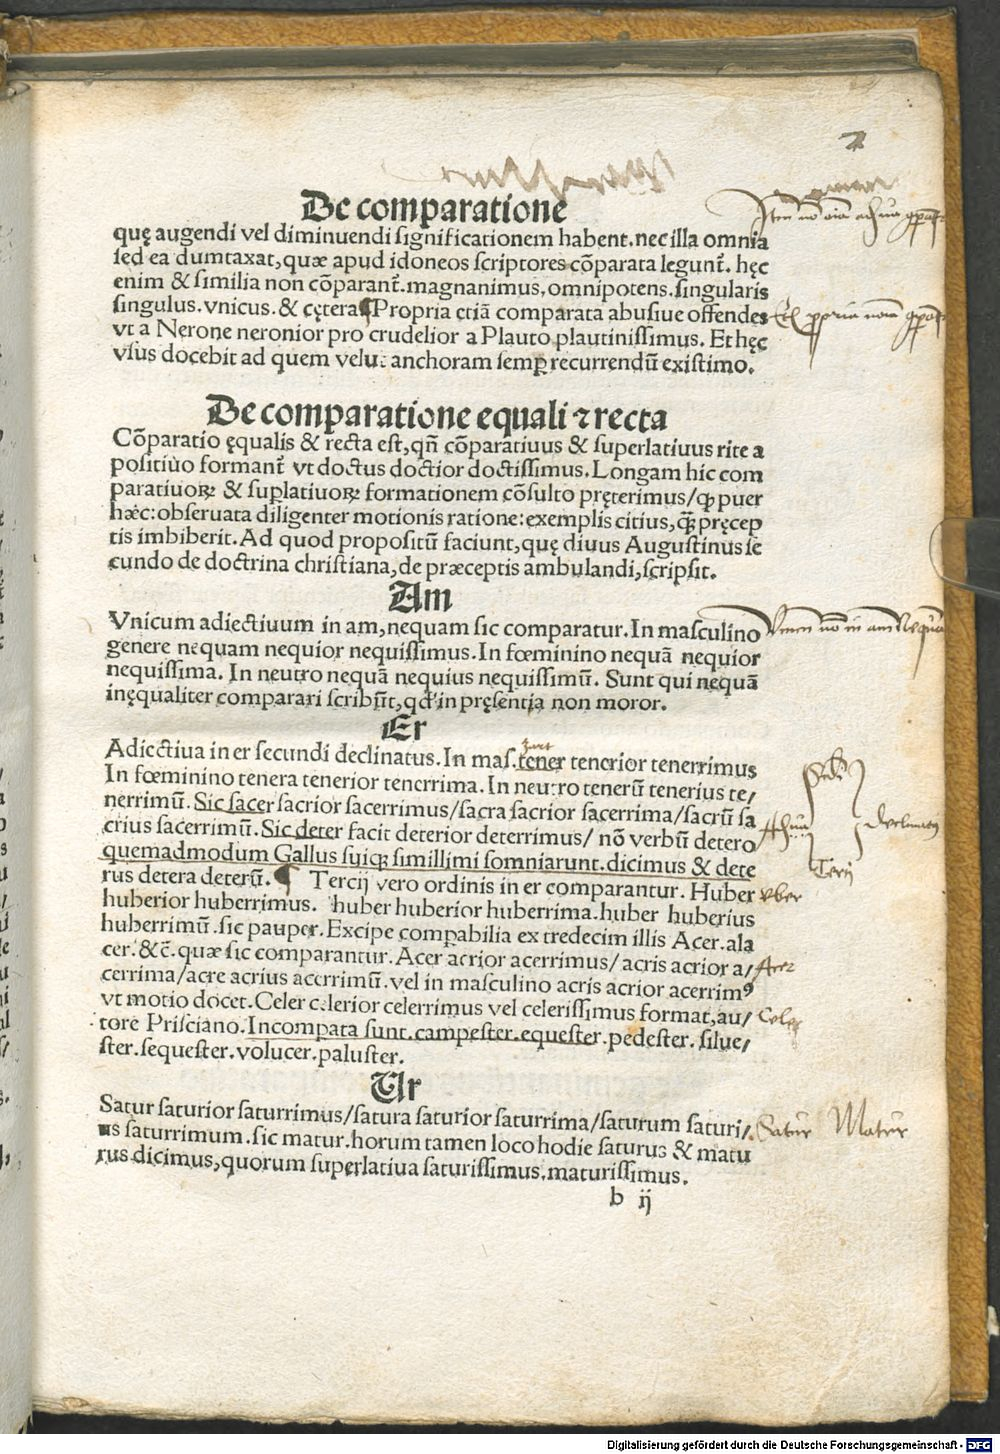 De comparatione
quę augendi vel diminuendi significationem habent.nec illa omnia
sed ea dumtaxat,quæ apud idoneos scriptores cōparata legunt᷑. hęc
enim & similia non cōparant᷑.magnanimus.omnipotens.singularis
singulus.vnicus.& cętera¶Propria etiā comparata abusiue offendes
vt a Nerone neronior pro crudelior a Plauto plautinissimus. Et hęc
vsus docebit ad quem velut anchoram semꝑ recurrendū existimo.
De comparatione equali ⁊ recta
Cōparatio ęqualis & recta est,qn̄ cōparatiuus & superlatiuus rite a
positiuo formant᷑ vt doctus doctior doctissimus.Longam hic com
paratiuoꝝ & suꝑlatiuoꝝ formationem cōsulto pręterimus/qꝫ puer
hæc:obseruata diligenter motionis ratione:exemplis citius,ꝗꝫ pręcep
tis imbiberit.Ad quod propositū faciunt,quę diuus Augustinus se
cundo de doctrina christiana,de præceptis ambulandi,scripsit.
Am
Vnicum adiectiuum in am,nequam sic comparatur.In masculino
genere nequam nequior nequissimus.In fœminino nequā nequior
nequissima. In neutro nequā nequius nequissimū. Sunt qui nequā
inęqualiter comparari scribūt,qd in pręsentia non moror.
Er
Adiectiua in er secundi declinatus.In mas.tener tenerior tenerrimus
In fœminino tenera tenerior tenerrima. In neutro tenerū tenerius te/
nerrimū. Sic sacer sacrior sacerrimus/sacra sacrior sacerrima/sacrū sa
crius sacerrimū. Sic deter facit deterior deterrimus/ nō verbū detero
quemadmodum Gallus suiqꝫ simillimi somniarunt.dicimus & dete
rus detera deterū.¶ Tercij vero ordinis in er comparantur. Huber
huberior huberrimus. huber huberior huberrima.huber huberius
huberrimū.sic pauper.Excipe comꝑabilia ex tredecim illis Acer.ala
cer.&c̄.quæ sic comparantur.Acer acrior acerrimus/acris acrior a/
cerrima/acre acrius acerrimū.vel in masculino acris acrior acerrimꝰ
vt motio docet.Celer celerior celerrimus vel celerissimus format,au/
tore Prisciano.Incomꝑata sunt.campester.equester.pedester.silue/
ster.sequester.volucer.paluster.
Ur
Satur saturior saturrimus/satura saturior saturrima/saturum saturi/
us saturrimum.sic matur.horum tamen loco hodie saturus & matu
rus dicimus,quorum superlatiua saturissimus.maturissimus.
b ij
Vnicū nō in am Nequā
declinatꝰ
Tercij
vber
Acer
Celer
Satur Matur
Digitalisierung gefördert durch die Deutsche Forschungsgemeinschaft - DFG